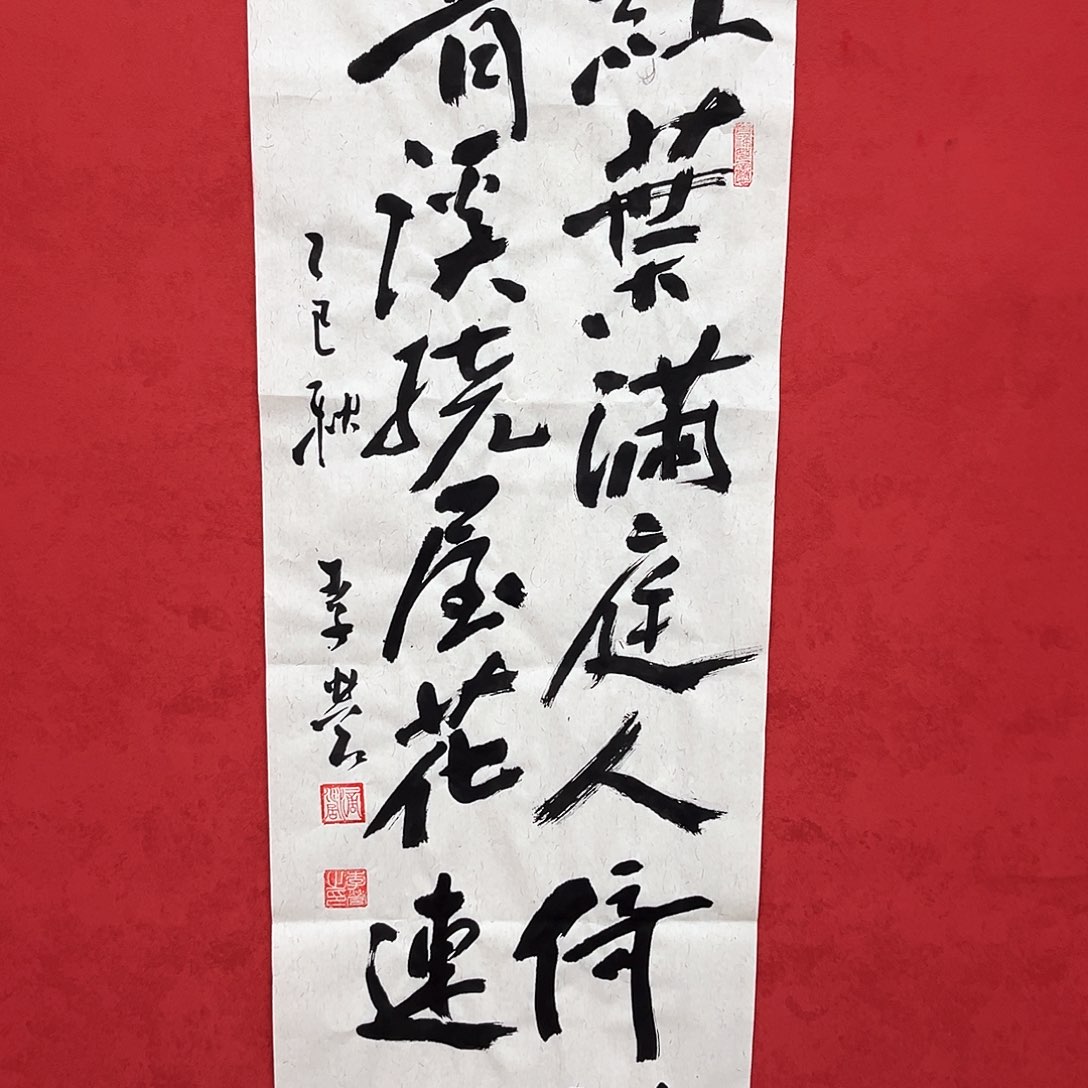 紅葉滿庭人倚
青溪繞屋花連
乙巳秋